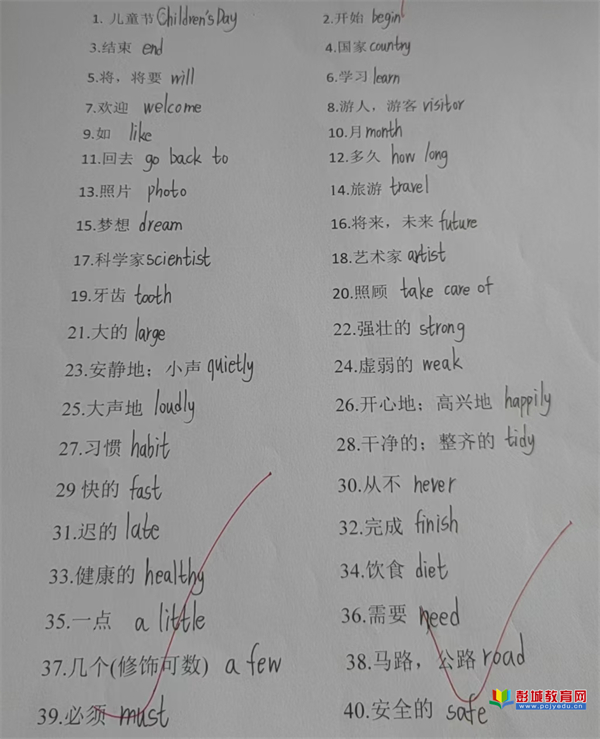 1. 儿童节 Children's Day 2.开始 begin
3.结束 end 4.国家 country
5.将，将要 will 6.学习 learn
7.欢迎 welcome 8.游人，游客 visitor
9.如 like 10.月 month
11.回去 go back to 12.多久 how long
13.照片 photo 14.旅游 travel
15.梦想 dream 16.将来，未来 future
17.科学家 scientist 18.艺术家 artist
19.牙齿 tooth 20.照顾 take care of
21.大的 large 22.强壮的 strong
23.安静地；小声 quietly 24.虚弱的 weak
25.大声地 loudly 26.开心地；高兴地 happily
27.习惯 habit 28.干净的；整齐的 tidy
29 快的 fast 30.从不 never
31.迟的 late 32.完成 finish
33.健康的 healthy 34.饮食 diet
35.一点 a little 36.需要 need
37.几个(修饰可数) a few 38.马路，公路 road
39.必须 must 40.安全的 safe
彭城教育网
www.pcjyedu.cn